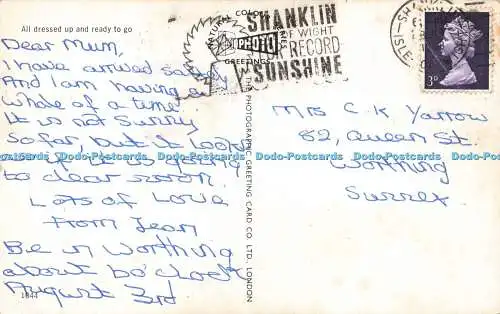 All dressed up and ready to go
Dear Mum,
I have arrived safely
And I am having a
Whale of a time
It is not Sunny
So far, but it looks
to clear soon.
Lots of Love
From Jean
Be in Worthing
about 6 o'clock
August 3rd
1844
NATURAL
COLOR
PHOTO
GREETINGS
SERIES
THE PHOTOGRAPHIC GREETING CARD CO LTD., LONDON
SHANKLIN
OF WIGHT
RECORD
SUNSHINE
3D
Mrs C K Yarrow
82, Queen St.
Worthing
Surrex
Dodo-Postcards Dodo-Postcards Dodo-Postcards Dodo-Postcards Dodo-Postcards